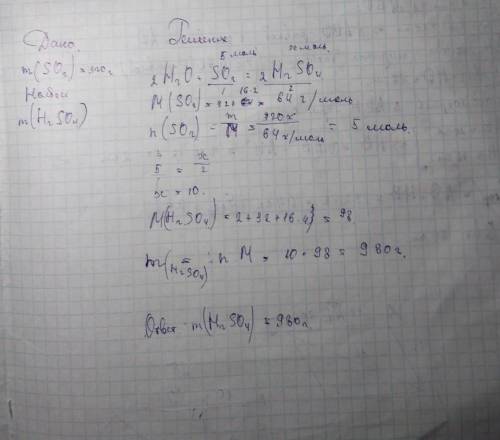 Дано
m(SO₂) = 320г
Найти
m(H₂SO₄)
Решение
5 моль x моль
2H₂O + SO₂ = 2H₂SO₄
1 2
M(SO₂) = 32 + 16·2 = 64 г/моль
n(SO₂) = m/M = 320г/64г/моль = 5 моль.
5 = x/2
x = 10.
M(H₂SO₄) = 2+32+16·4 = 98
m(H₂SO₄) = n M = 10 · 98 = 980г.
Ответ m(H₂SO₄) = 980г